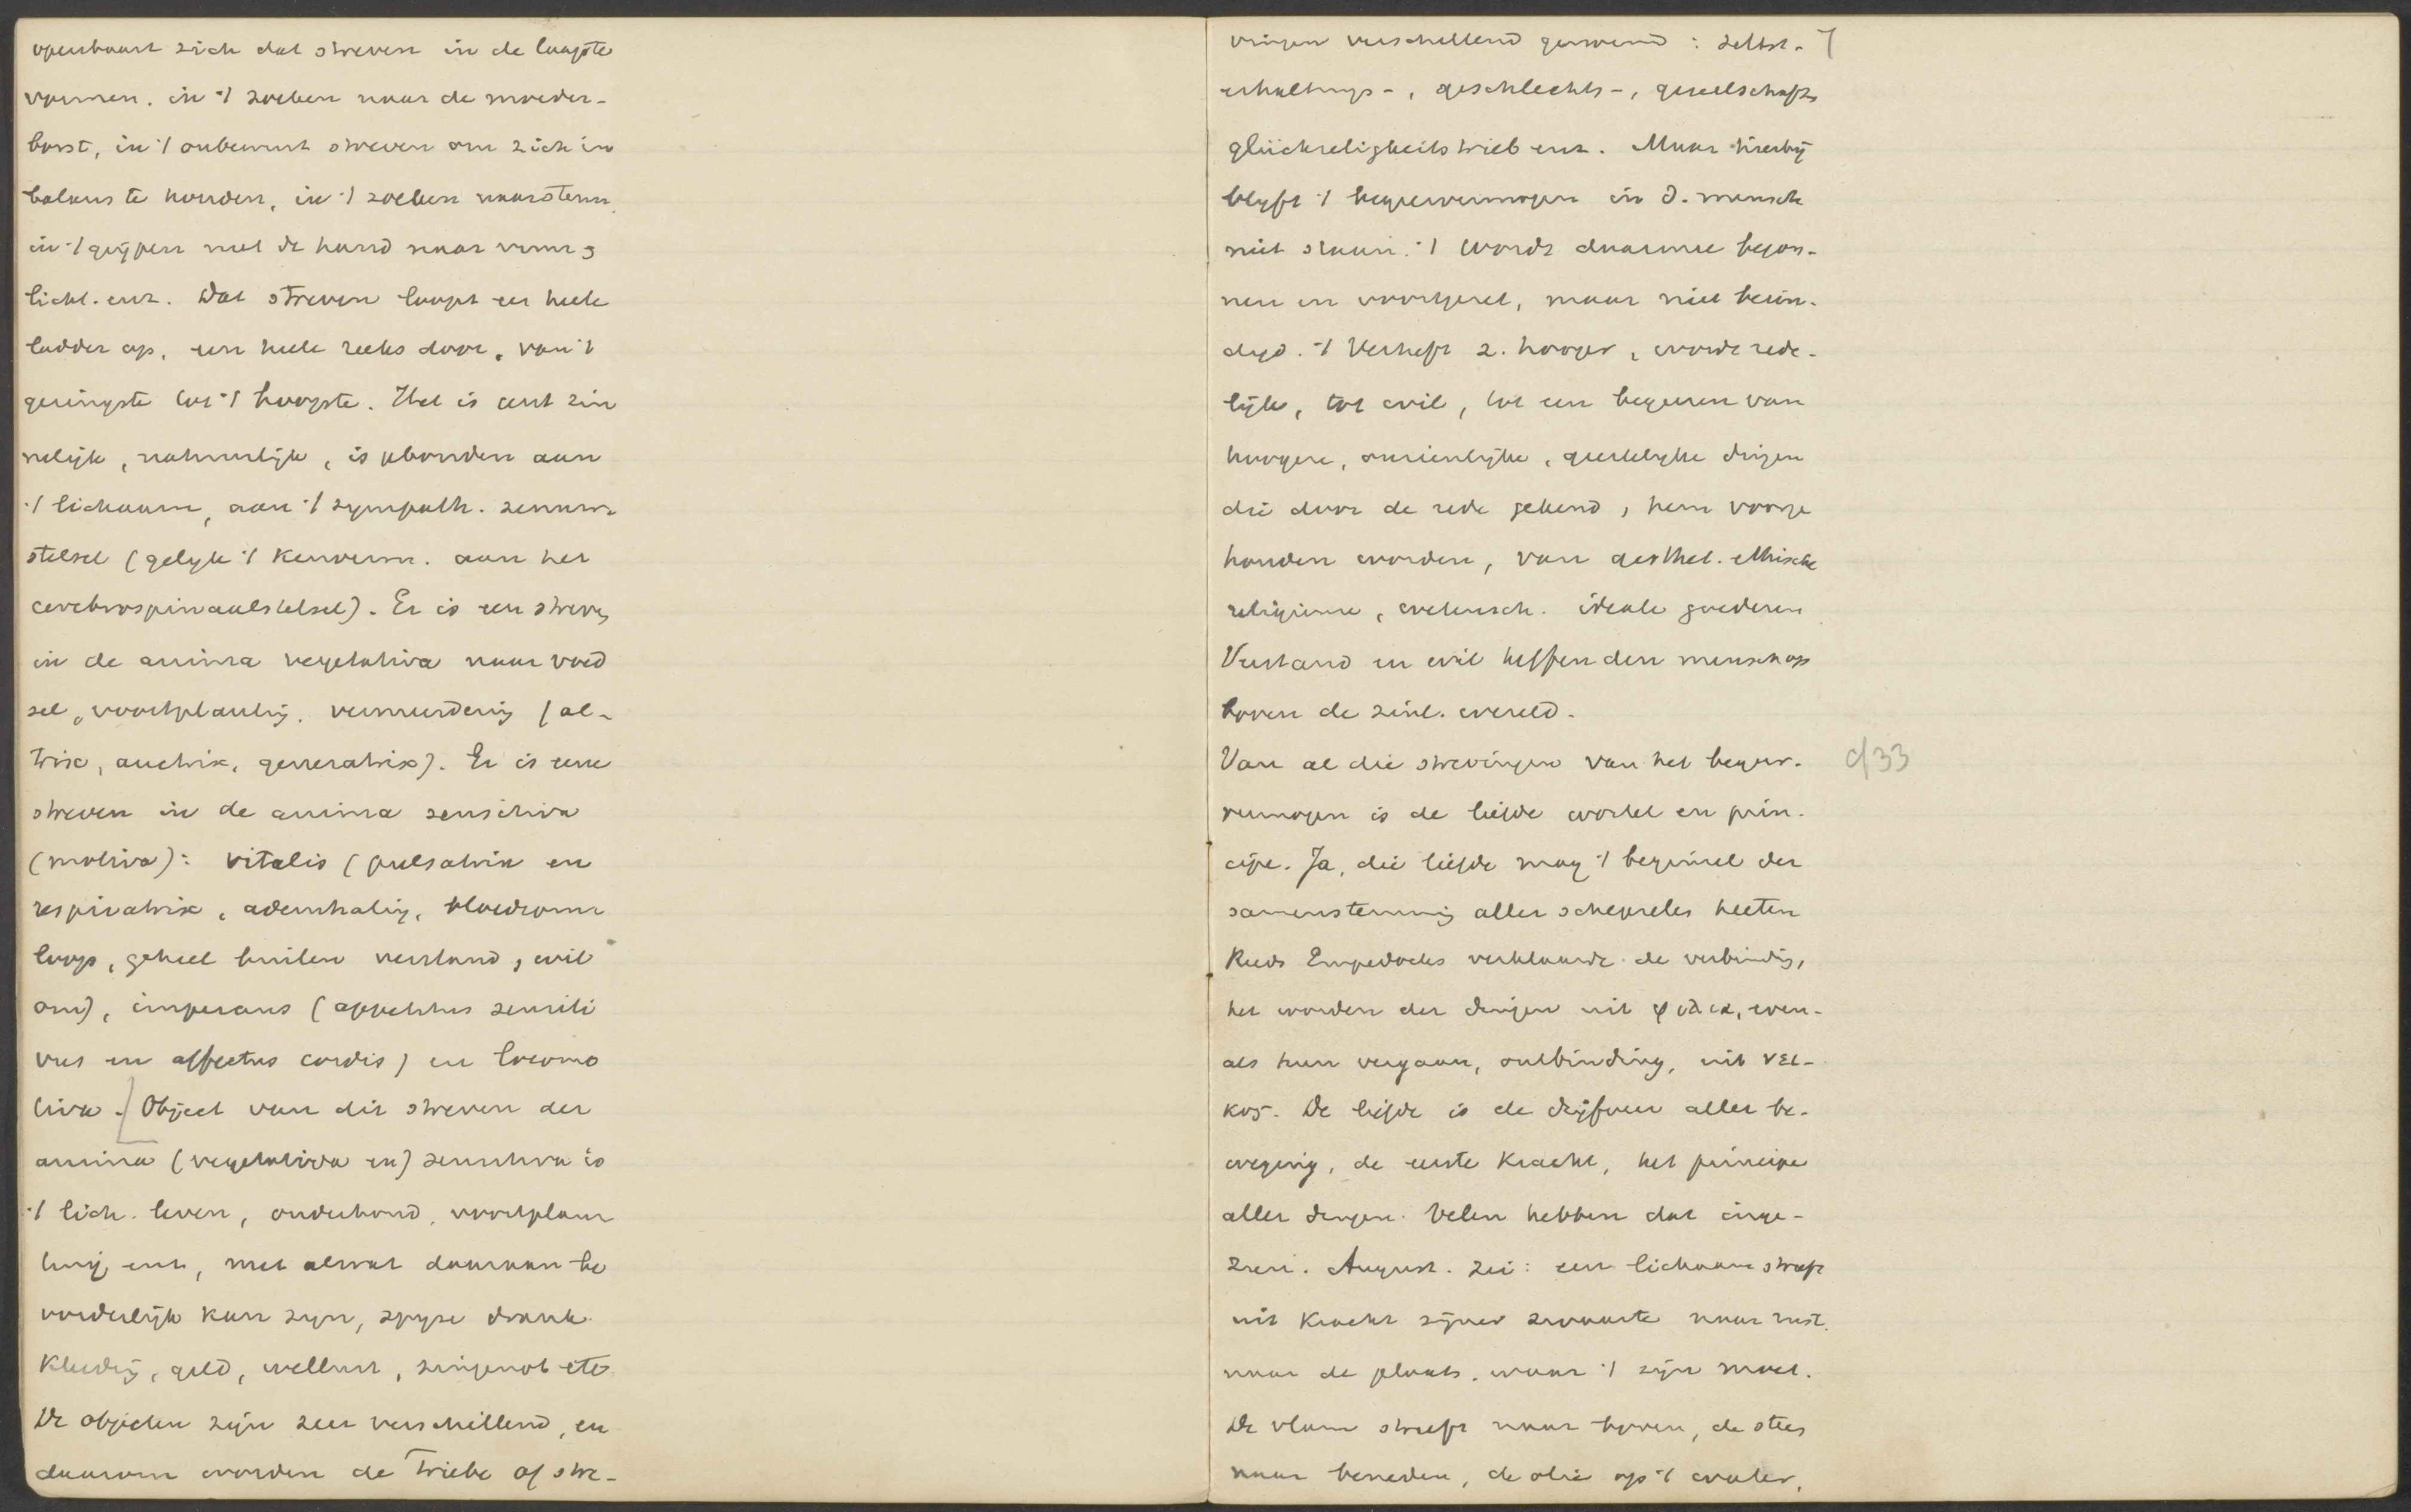 openbaart zich dat streven in de laagste
vormen. in 't zoeken naar de moeder-
borst, in 't onbewust streven om zich in
balans te houden, in 't zoeken naar stem
in 't grijpen met de hand naar vorm &
licht. enz. Dat streven loopt een heele
ladder op, een heele reeks door, van 't
geringste tot 't hoogste. Het is eerst zin
nelijk, natuurlijk, is gebonden aan
't lichaam, aan 't sympath. zenuw
stelsel (gelijk 't kenverm. aan het
cerebrospinaalstelsel). Er is een streven
in de anima vegetativa naar voed
sel, voortplanting, vermeerdering (al-
trix, auctrix, generatrix). Er is een
streven in de anima sensitiva
(motiva): vitalis (pulsatrix en
respiratrix, ademhaling, bloedsom
loop, geheel buiten verstand, wil
om), imperans (appetitus sensiti
vus en affectus cordis) en locomo
tiva. [Object van dit streven der
anima (vegetativa en) sensitiva is
't lich. leven, onderhoud, voortplan
ting enz, met alwat daaraan be
vorderlijk kan zijn, spijze drank
kleeding, geld, wellust, zingenot etc
De objecten zijn zeer verschillend, en
daarom worden de Triebe of stre-
vingen verschillend genoemd: selbst- 7
erhaltungs-, geschlechts-, gesellschafts
glückseligkeitstrieb enz. Maar hierbij
blijft 't begeervermogen in d. mensch
niet staan. 't Wordt daarmee begon-
nen en voortgezet, maar niet beëin-
digd. 't Verheft z. hooger, wordt rede-
lijk, tot wil, tot een begeeren van
hoogere, onzienlijke, geestelijke dingen
die door de rede gekend, hem voorge
houden worden, van aesthet. ethische
religieuse, wetensch. ideale goederen
Verstand en wil heffen den mensch op
boven de zinl. wereld.
Van al die strevingen van het begeer- d33
vermogen is de liefde wortel en prin-
cipe. Ja, die liefde mag 't beginsel der
samenstemming aller schepselen heeten
Reeds Empedocles verklaarde de verbinding,
het worden der dingen uit φιλια, even-
als hun vergaan, ontbinding, uit νει-
κος. De liefde is de drijfveer aller be-
weging, de eerste kracht, het principe
aller dingen. Velen hebben dat inge-
zien. August. zei: een lichaam streeft
uit kracht zijner zwaarte naar rust,
naar de plaats, waar 't zijn moet.
De vlam streeft naar boven, de steen
naar beneden, de olie op 't water,